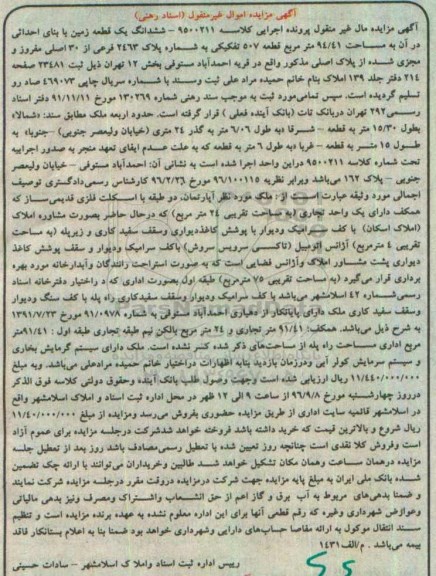 آگهی مزایده اموال غیرمنقول (اسناد رهنی)
آگهی مزایده مال غیر منقول پرونده اجرایی کلاسه ۹۵۰۰۲۱۱ - ششدانگ یک قطعه زمین با بنای احداثی
در آن به مساحت ۹۴/۴۱ متر مربع قطعه ۵۰۷ تفکیکی به شماره پلاک ۲۴۶۳ فرعی از ۳۰ اصلی مفروز و
مجزی شده از پلاک اصلی مذکور واقع در قریه احمدآباد مستوفی بخش ۱۲ تهران ذیل ثبت ۲۳۴۸۱ صفحه
۲۱۴ دفتر جلد ۱۳۹ املاک بنام خانم حمیده مراد علی ثبت وسند با شماره سریال چاپی ۴۶۹۰۷۳ صادر و
تسلیم گردیده است. سپس تمامی مورد ثبت به موجب سند رهنی شماره ۱۳۰۲۶۹ مورخ ۹۱/۱۱/۱۱ دفتر اسناد
رسمی ۲۹۲ تهران دربانک تات (بانک آینده فعلی) قرار گرفته است. حدود اربعه ملک مطابق سند: شمالا به
بطول ۱۵/۳۰ متر به قطعه - شرقا به طول ۶/۰۶ متر به گذر ۲۴ متری (خیابان ولیعصر جنوبی) - جنوبا به
طول ۱۵ متر به قطعه - غربا به طول ۶ متر به قطعه که به علت عدم ایفای تعهد منجر به صدور اجراییه
تحت شماره کلاسه ۹۵۰۰۲۱۱ در این واحد اجرا شده است به نشانی آن: احمدآباد مستوفی - خیابان ولیعصر
جنوبی - پلاک ۱۶۲ می‌باشد وبرابر نظریه ۹۶/۱۰۰۱۱۵ مورخ ۹۶/۲/۲۶ کارشناس رسمی دادگستری توصیف
اجمالی مورد وثیقه عبارت است از: ملک مورد نظر آپارتمان، دو طبقه با اسکلت فلزی قدیمی ساز که
همکف دارای یک واحد تجاری (به مساحت تقریبی ۲۴ متر مربع) که درحال حاضر بصورت مشاوره املاک
(املاک اسکان) با کف سرامیک ودیوار با پوشش کاغذدیواری وسقف سفید کاری و زیرپله (به مساحت
تقریبی ۴ مترمربع) آژانس اتومبیل (تاکسی سرویس سروش) باکف سرامیک ودیوار و سقف پوشش کاغذ
دیواری پشت مشاور املاک وآژانس فضایی است که به صورت استراحت رانندگان وآبدارخانه مورد بهره
برداری قرار می‌گیرد (به مساحت تقریبی ۷۵ مترمربع) طبقه اول بصورت اداری که در اختیار دفترخانه اسناد
رسمی شماره ۴۲ اسلامشهر می‌باشد با کف سرامیک ودیوار وسقف سفیدکاری راه پله با کف سنگ ودیوار
وسقف سفید کاری ملک دارای پایانکار از دهیاری احمدآباد مستوفی به شماره ۹۱/۰۹۷۸ مورخ ۱۳۹۱/۷/۲۳
به شرح ذیل می‌باشد. همکف: ۹۱/۴۱ متر تجاری و ۲۴ متر مربع بالکن نیم طبقه تجاری طبقه اول: ۹۱/۴۱متر
مربع اداری مساحت راه پله از مساحت‌های ذکر شده کسر نشده است. ملک دارای سیستم گرمایش بخاری
و سیستم سرمایش کولر آبی ودرزمان بازدید بنابه اظهارات دراختیار خانم حمیده مرادعلی می‌باشد. وبه مبلغ
۱۱/۴۴۰/۰۰۰/۰۰۰ ریال ارزیابی شده است وجهت وصول طلب بانک آینده وحقوق دولتی کلاسه فوق الذکر
درروز چهارشنبه مورخ ۹۶/۹/۸ از ساعت ۹ الی ۱۲ ظهر در محل اداره ثبت اسناد و املاک اسلامشهر واقع
در اسلامشهر قائمیه سایت اداری از طریق مزایده حضوری بفروش می‌رسد ومزایده از مبلغ ۱۱/۴۴۰/۰۰۰/۰۰۰
ریال شروع و بالاترین قیمت که خرید داشته باشد فروخته خواهد شد شرکت درجلسه مزایده برای عموم آزاد
است وفروش کلا نقدی است چنانچه روز تعیین شده با تعطیل رسمی مصادف باشد روز بعد از تعطیل جلسه
مزایده درهمان ساعت وهمان مکان تشکیل خواهد شد طالبین وخریداران می‌توانند با ارائه چک تضمین
شده بانک ملی ایران به مبلغ پایه مزایده جهت شرکت درمزایده دروقت مقرر درجلسه مزایده شرکت نمایند
و ضمنا بدهی‌های مربوط به آب برق و گاز اعم از حق انشعاب واشتراک ومصرف ونیز بدهی مالیاتی
وعوارض شهرداری وغیره که رقم قطعی آنها برای این اداره معلوم نشده به عهده برنده مزایده است و تنظیم
سند انتقال موکول به ارائه مفاصا حساب‌های دارایی وشهرداری خواهد بود ضمنا بنا به اعلام بستانکار فاقد
بیمه می‌باشد. م/الف ۱۴۳۱
رییس اداره ثبت اسناد واملاک اسلامشهر - سادات حسینی